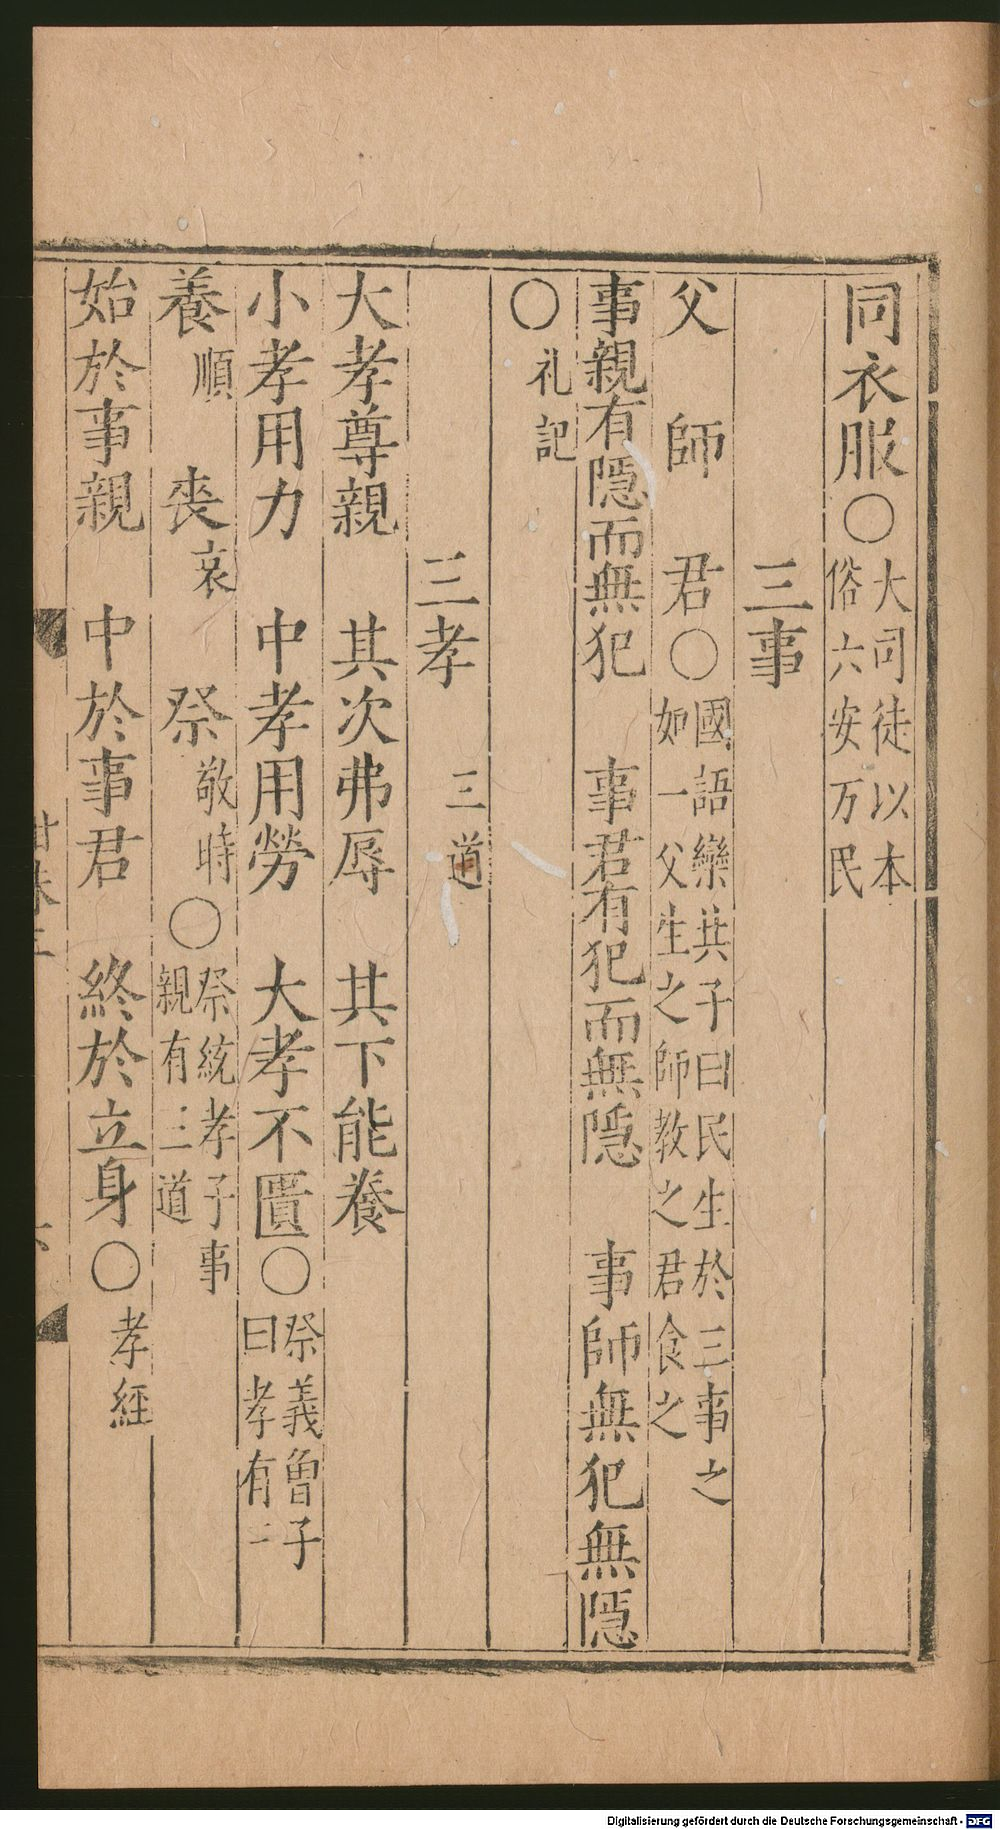 同衣服○大司徒以本俗六安万民
三事
父 師 君○國語欒共子曰民生於三事之如一父生之師教之君食之
事親有隠而無犯 事君有犯而無隠 事師無犯無隠
○礼記
三孝 三道
大孝尊親 其次弗辱 其下能養
小孝用力 中孝用勞 大孝不匱○祭義曾子曰孝有三
養順 喪哀 祭敬時○祭統孝子事親有三道
始於事親 中於事君 終於立身○孝經
Digitalisierung gefördert durch die Deutsche Forschungsgemeinschaft - DFG